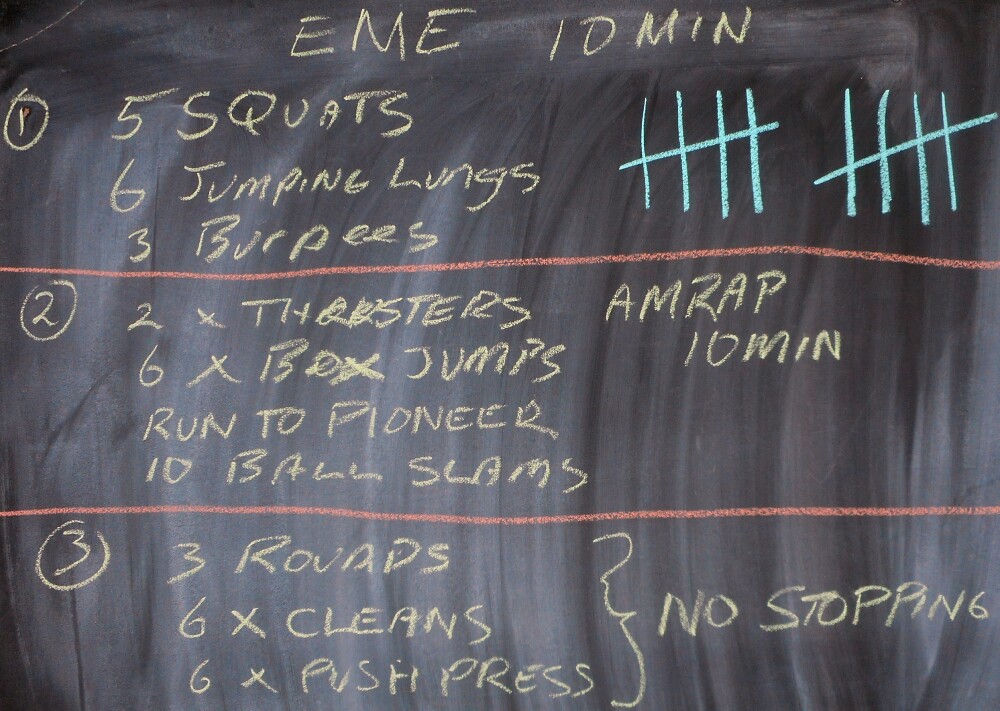 EME 10 MIN
① 5 SQUATS
6 JUMPING LUNGS
3 BURPEES
② 2 x THRKSTERS AMRAP
6 x BOX JUMPS 10 MIN
RUN TO PIONEER
10 BALL SLAMS
③ 3 ROUNDS
6 X CLEANS NO STOPPING
6 x PUSH PRESS